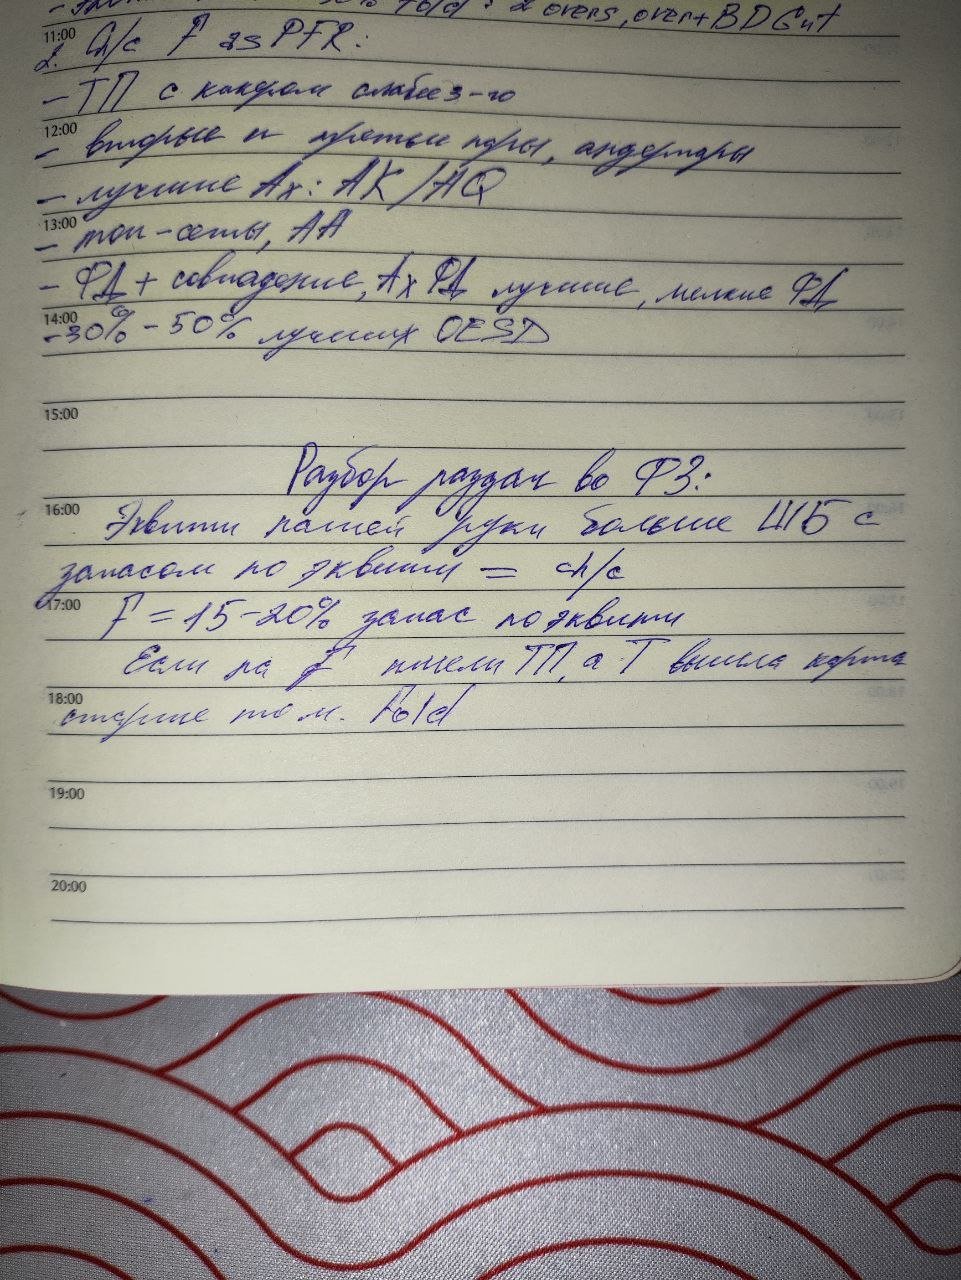 fold: 2 overs, over+BDGut
11:00
2. Ch/c F as PFR:
- ТП с кикером слабее 3-го
12:00
- вторые и третьи пары, андерпары
- лучшие Ax: AK/AQ
13:00
- топ-сеты, AA
- ФД + совпадение, Ax ФД лучшие, мелкие ФД
14:00
- 30% - 50% лучших OESD
15:00
Разбор раздач во ФЗ:
16:00
Эквити нашей руки больше ШБ с
запасом по эквити = ch/c
17:00
F = 15-20% запас по эквити
Если на F имели ТП, а T вышла карта
18:00
старше то м. Fold
19:00
20:00